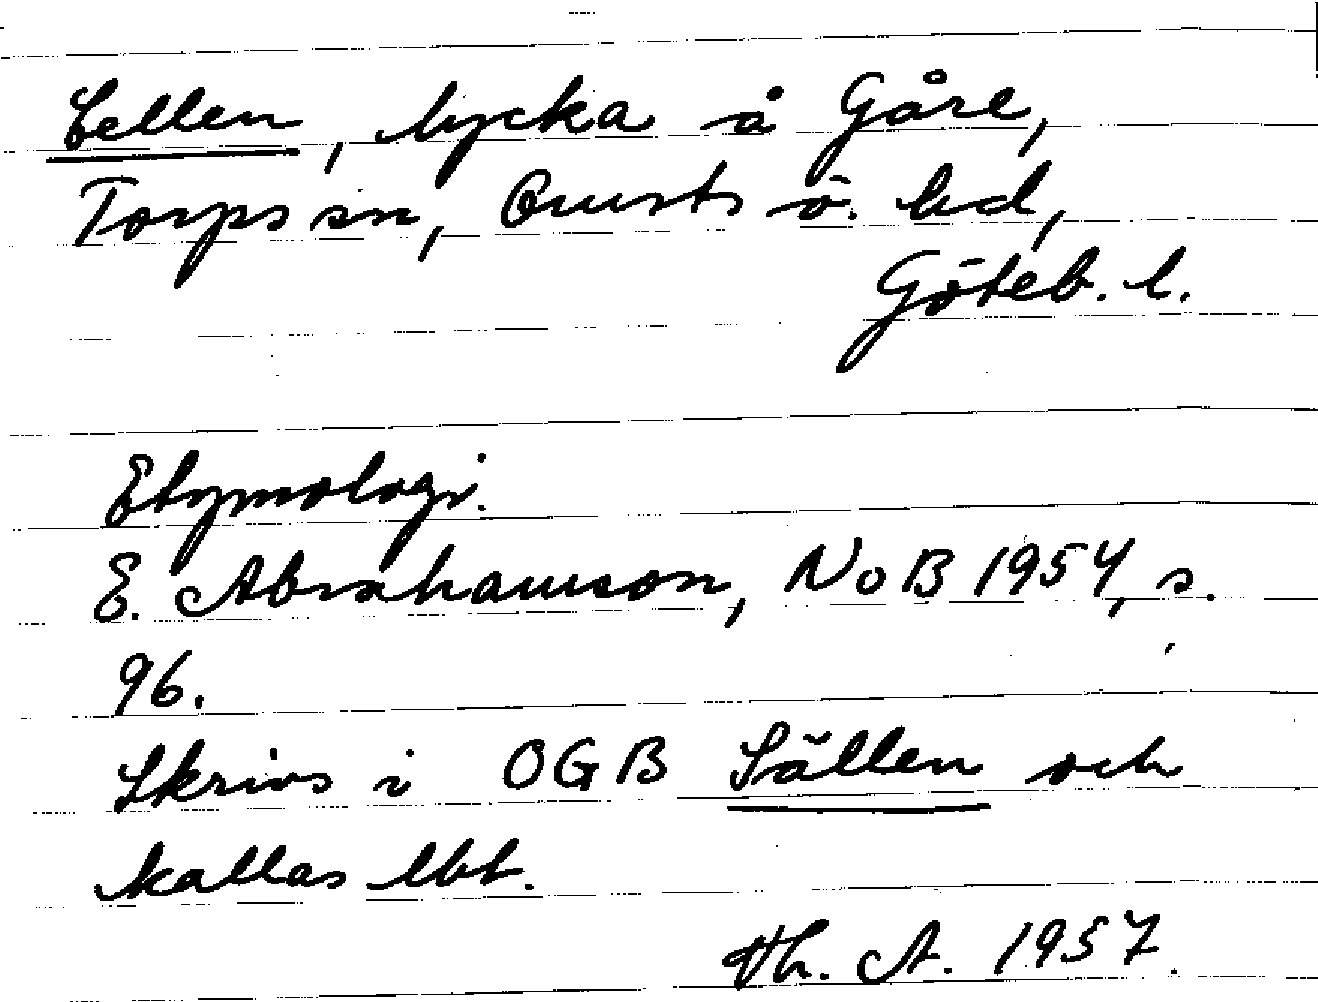 Cellen, lycka å Gåre,
Torps sn, Orusts ö. hd,
Göteb. l.
Etymologi.
E. Abrahamson, NoB 1954, s.
96.
Skrivs i OGB Sällen och
kallas lbt.
Hj. A. 1957.